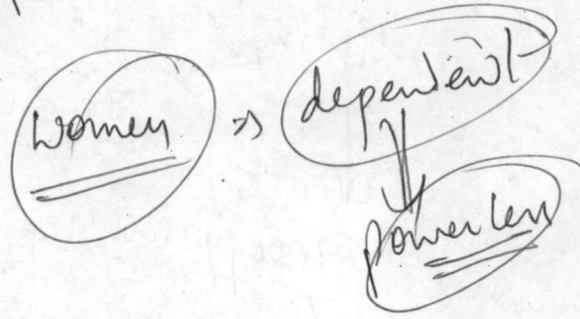 women ⇒ dependent
⇓
powerless